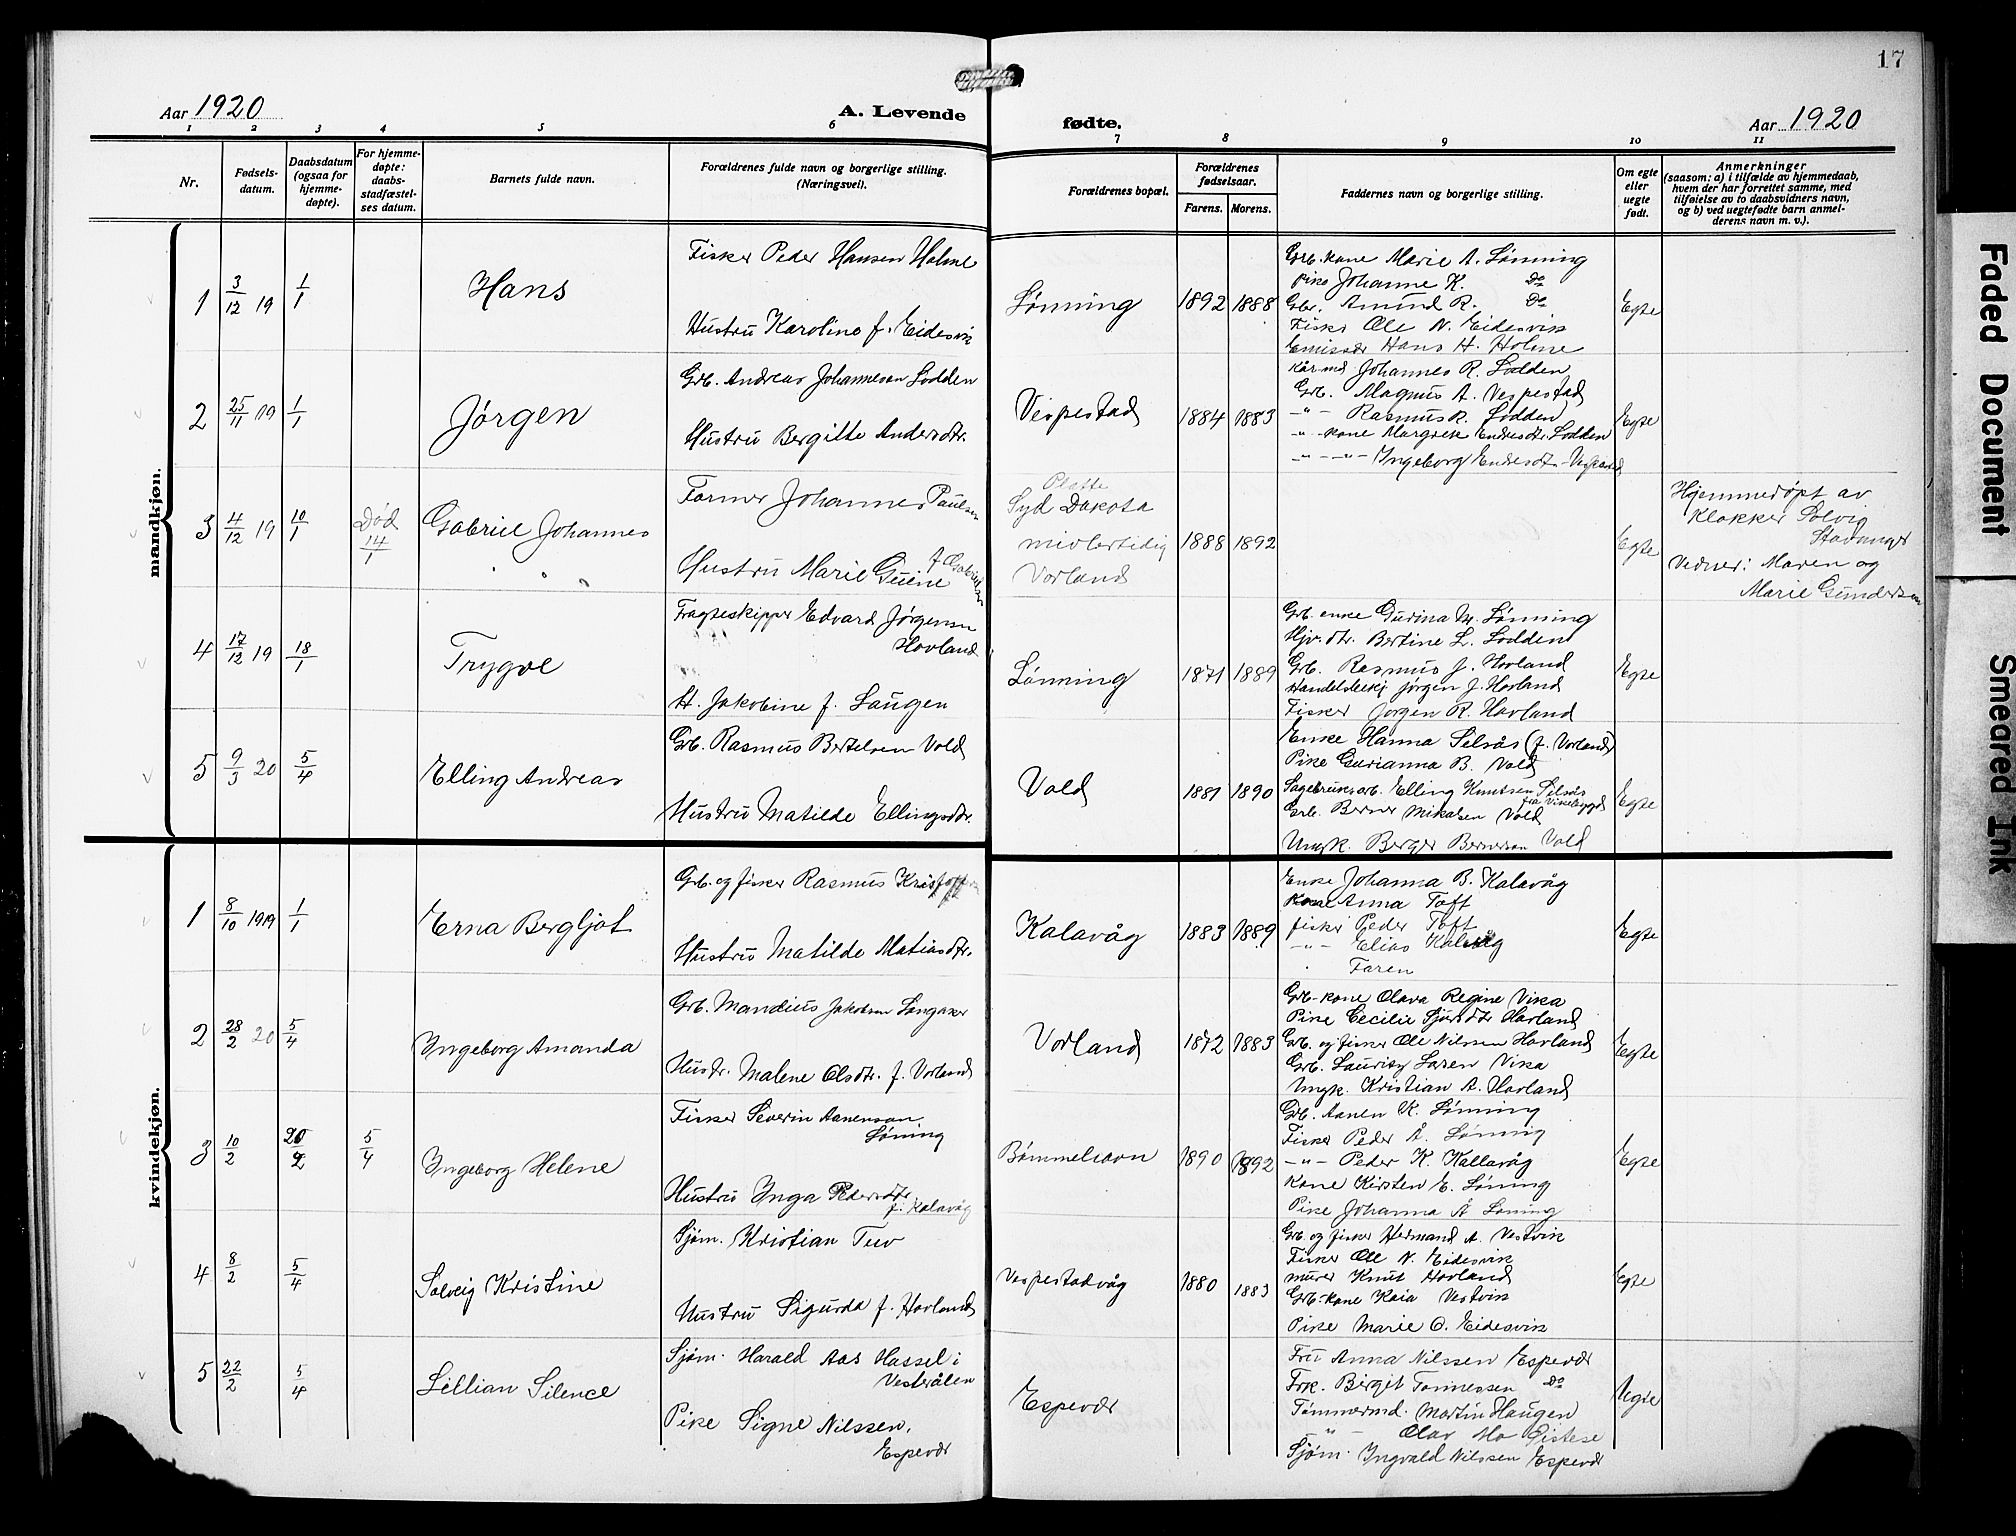 17
Aar 1920
A. Levende
fødte.
Aar 1920
1 2 3 4 5 6 7 8 9 10 11
Nr.
Fødsels-
datum.
Daabsdatum
(ogsaa for
hjemme-
døpte).
For hjemme-
døpte:
daabs-
stadfæstel-
ses datum.
Barnets fulde navn.
Forældrenes fulde navn og borgerlige stilling.
(Næringsvei).
Forældrenes bopæl.
Forældrenes
fødselsaar.
Farens. Morens.
Faddernes navn og borgerlige stilling.
Om egte
eller
uegte
født.
Anmerkninger
(saasom: a) i tilfælde av hjemmedaab,
hvem der har forrettet samme, med
tilføielse av to daabsvidners navn,
og b) ved uegtefødte barn anmel-
derens navn m. v.).
mandkjøn.
1 3/12 19 1/1 Hans
Fisker Peder Hansen Holme
Hustru Karoline f. Eidesvik
Lønning 1892 1888
Grb. kone Marie A. Lønning
Pike Johanne K. Do
Grb. Amund R. Do
Fisker Ole N. Eidesvik
Emissær Hans H. Holme
Egte
2 25/11 19 1/1 Jørgen
Grb. Andreas Johannesen Lodden
Hustru Bergitte Andersdtr.
Vespestad 1884 1883
Kårmd Johannes R. Lodden
Grb. Magnus A. Vespestad
-"- Rasmus R. Lodden
-"- kone Margrete Endresdtr. Lodden
-"- -"- Ingeborg Endresdtr. Vespestad
Egte
3 4/12 19 10/1 Død 14/1 Gabriel Johannes
Farmer Johannes Paulsen
Hustru Marie Guine f. Gabrielsen
Platte
Syd Dakota
midlertidig
Vorland
1888 1892
Egte
Hjemmedøpt av
Klokker Solvig
Stavanger
Vidner: Maren og
Marie Gundersen
4 17/12 19 18/1 Trygve
Fragteskipper Edvard Jørgensen
Hovland
H. Jakobine f. Laugen
Lønning 1871 1889
Grb. enke Gurina Lønning
Hjv. dtr. Bertine L. Lodden
Grb. Rasmus J. Hovland
Handelsbetj Jørgen J. Hovland
Fisker Jørgen R. Hovland
Egte
5 9/3 20 5/4 Elling Andreas
Grb. Rasmus Bertelsen Vold
Hustru Matilde Ellingsdtr.
Vold 1881 1890
Enke Hanna Silsås (f. Vorland)
Pike Gurianna B. Vold
Sagbruksarb. Elling Knutsen Silsås
fra Vikebygd
Grb. Berner Mikalsen Vold
Ungk. Berger Bernersen Vold
Egte
kvindekjøn.
1 8/10 1919 1/1 Erna Bergljot
Grb. og fisker Rasmus Kristoffersen
Hustru Matilde Matiasdtr.
Kalavåg 1883 1889
Enke Johanna B. Kalavåg
Kone Anna Toft
fisker Peder Toft
-"- Elias Kalavåg
Faren
Egte
2 28/2 20 5/4 Ingeborg Amanda
Grb. Mandius Jakobsen Langaker
Hustr. Malene Olsdtr. f. Vorland
Vorland 1872 1883
Grb-kone Olava Regine Vika
Pike Cecilie Sjursdtr Hovland
Grb. og fisker Ole Nilssen Hovland
Grb. Lauritz Laren Vika
Ungk. Kristian A. Hovland
Egte
3 10/2 20/2 5/4 Ingeborg Helene
Fisker Severin Aanensen
Løning
Hustru Inga Pedersdtr
f. Kalavåg
Bømmelhavn 1890 1892
Grb. Aanen K. Lønning
Fisker Peder Å. Lønning
-"- Peder K. Kallavåg
Kone Kirsten E. Løning
Pike Johanna Å Løning
Egte
4 8/2 5/4 Solveig Kristine
Sjøm. Kristian Tuv
Hustru Sigurda f. Hovland
Vespestadvåg 1880 1883
Grb. og fisker Hermand A. Vestvik
Fisker Ole N. Eidesvik
murer Knut Hovland
Grb-kone Kaia Vestvik
Pike Marie O. Eidesvik
Egte
5 22/2 5/4 Lillian Silence
Sjøm. Harald Aas Hassel i
Vesterålen
Pike Signe Nilssen,
Espevær
Espevær
Fru Anna Nilssen Espevær
Frk. Birgit Tønnessen Do
Tømmermd. Martin Haugen
-"- Olav Mo Øistese
Sjøm. Ingvald Nilssen Espevær
Uegte
Faded Document
Smeared Ink